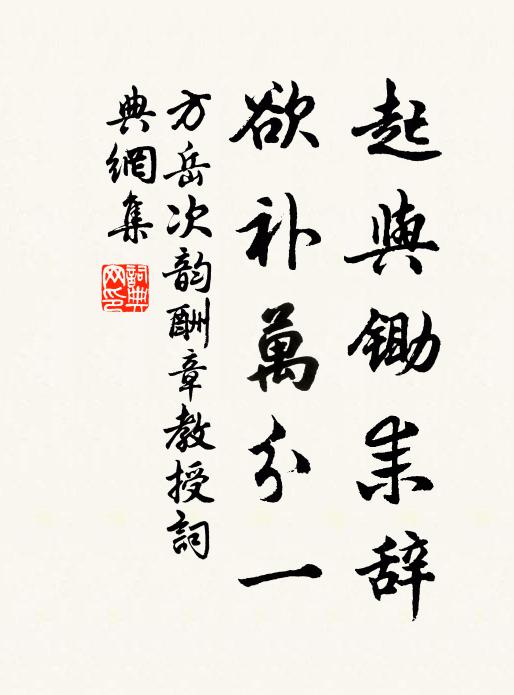 起與鋤耒辞
欲补萬分一
方岳次韵酬章教授詞
典網集
詞典网印